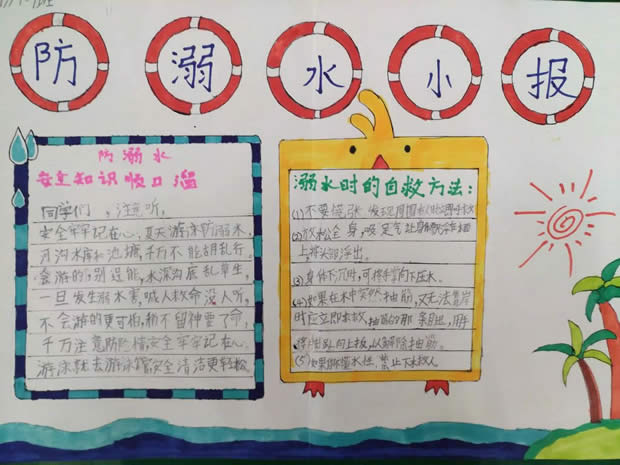 防溺水小报
防溺水
安全知识顺口溜
同学们,注意听,
安全牢牢记在心,夏天游泳防溺水,
河沟水库和池塘,千万不能胡乱行。
会游的,别逞能,水深沟底乱草生,
一旦发生溺水害,喊人救命没人听,
不会游的更可怕,稍不留神要了命,
千万注意防险情安全牢牢记在心。
游泳就去游泳馆安全清洁更轻松
溺水时的自救方法:
(1)不要慌张,发现周围有人时呼救
(2)放松全身,吸足气让身体
上,将头浮出。
(3)身体下沉时,可将手掌向下压水。
(4)如果在水中突然抽筋,又无法靠岸
时应立即求救,抽筋的那
将脚趾向上扳,以解除抽筋。
(5)如果不懂水性,禁止下水救人